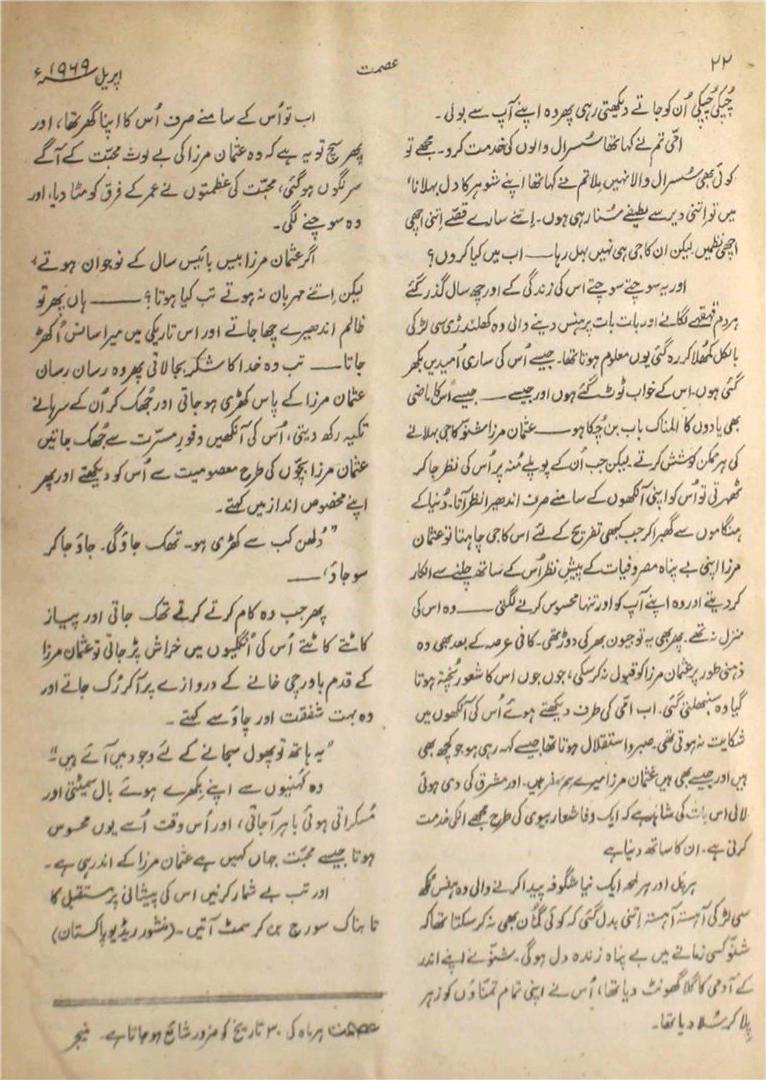 ۲۲
عصمت
اپریل ۱۹۶۹ء
چُپکی چُپکی اُن کو جاتے دیکھتی رہی پھر وہ اپنے آپ سے بولی۔
امّی تم نے کہا تھا سُسرال والوں کی خدمت کرو۔ مجھے تو
کوئی بھی سُسرال والا نہیں ملا تم نے کہا تھا اپنے شوہر کا دل بہلانا،
میں تو اِتنی دیر سے لطیفے سُنا رہی ہوں۔ اِتنے سارے قصّے اِتنی اچھی
اچھی نظمیں لیکن ان کا جی ہی نہیں بہل رہا — اب میں کیا کروں؟
اور یہ سوچتے سوچتے اس کی زندگی کے اور چھ سال گذر گئے
ہر دم قہقہے لگانے اور بات بات پر ہنس دینے والی وہ کھلنڈری سی لڑکی
بالکل کمھلا کر رہ گئی یوں معلوم ہوتا تھا۔ جیسے اُس کی ساری اُمیدیں بکھر
گئی ہوں۔ اس کے خواب ٹوٹ گئے ہوں اور جیسے — جیسے اُس کا ماضی
بھی یادوں کا المناک باب بن چُکا ہو — عثمان مرزا شنّو کا جی بہلانے
کی ہر ممکن کوشش کرتے۔ لیکن جب اُن کے پوپلے مُنہ پر اُس کی نظر جا کر
ٹھہرتی تو اُس کو اپنی آنکھوں کے سامنے صرف اندھیرا نظر آتا۔ دُنیا کے
ہنگاموں سے گھبرا کر جب کبھی تفریح کے لئے اس کا جی چاہتا تو عثمان
مرزا اپنی بے پناہ مصروفیات کے پیشِ نظر اُس کے ساتھ چلنے سے انکار
کر دیتے اور وہ اپنے آپ کو اور تنہا محسوس کرنے لگتی — وہ اس کی
منزل نہ تھے۔ پھر بھی یہ تو جیون بھر کی دوڑ تھی۔ کافی عرصہ کے بعد بھی وہ
ذہنی طور پر عثمان مرزا کو قبول نہ کر سکی، جوں جوں اس کا شعور پُختہ ہوتا
گیا وہ سنبھلتی گئی۔ اب امّی کی طرف دیکھتے ہوئے اُس کی آنکھوں میں
شکایت نہ ہوتی تھی۔ صبر و استقلال ہوتا تھا جیسے کہہ رہی ہو جو کچھ بھی
ہیں اور جیسے بھی ہیں عثمان مرزا میرے ہمسفر ہیں۔ اور مشرق کی دی ہوئی
لالی اس بات کی شاہد ہے کہ ایک وفا شعار بیوی کی طرح مجھے انکی خدمت
کرنی ہے۔ ان کا ساتھ دینا ہے
ہر پل اور ہر لمحہ ایک نیا شگوفہ پیدا کرنے والی وہ ہنس مکھ
سی لڑکی آہستہ آہستہ اِتنی بدل گئی کہ کوئی گُمان بھی نہ کر سکتا تھا کہ
شنّو کسی زمانے میں بے پناہ زندہ دل ہوگی۔ شنّو نے اپنے اندر
کے آدمی کا گلا گھونٹ دیا تھا، اُس نے اپنی تمام تمنّاؤں کو زہر
پلا کر سُلا دیا تھا۔
اب تو اُس کے سامنے صرف اُس کا اپنا گھر تھا، اور
پھر سچ تو یہ ہے کہ وہ عثمان مرزا کی بے لوث محبّت کے آگے
سرنگوں ہو گئی، محبّت کی عظمتوں نے عمر کے فرق کو مٹا دیا، اور
وہ سوچنے لگی۔
اگر عثمان مرزا بیس بائیس سال کے نوجوان ہوتے،
لیکن اِتنے مہربان نہ ہوتے تب کیا ہوتا؟ — ہاں پھر تو
ظالم اندھیرے چھا جاتے اور اس تاریکی میں میرا سانس اُکھڑ
جاتا — تب وہ خدا کا شکر بجا لاتی پھر وہ رسان رسان
عثمان مرزا کے پاس کھڑی ہو جاتی اور جُھک کر اُن کے سرہانے
تکیہ رکھ دیتی، اُس کی آنکھیں وفورِ مسرّت سے جُھک جاتیں
عثمان مرزا بچّوں کی طرح معصومیت سے اُس کو دیکھتے اور پھر
اپنے مخصوص انداز میں کہتے۔
"دُلھن کب سے کھڑی ہو۔ تھک جاؤ گی۔ جاؤ جا کر
سو جاؤ" —
پھر جب وہ کام کرتے کرتے تھک جاتی اور پیاز
کاٹتے کاٹتے اُس کی اُنگلیوں میں خراش پڑ جاتی تو عثمان مرزا
کے قدم باورچی خانے کے دروازے پر آ کر رُک جاتے اور
وہ بہت شفقت اور چاؤ سے کہتے۔
"یہ ہاتھ تو پھول سجانے کے لئے وجود میں آئے ہیں"
وہ کہنیوں سے اپنے بکھرے ہوئے بال سمیٹتی اور
مُسکراتی ہوئی باہر آ جاتی، اور اُس وقت اُسے یوں محسوس
ہوتا جیسے محبّت جہاں کہیں ہے عثمان مرزا کے اندر ہی ہے۔
اور تب بے شمار کرنیں اس کی پیشانی پر مستقبل کا
تابناک سورج بن کر سمٹ آتیں۔ (منشور ریڈیو پاکستان)
عصمت ہر ماہ کی ۳۰ تاریخ کو ضرور شائع ہو جاتا ہے۔ منیجر